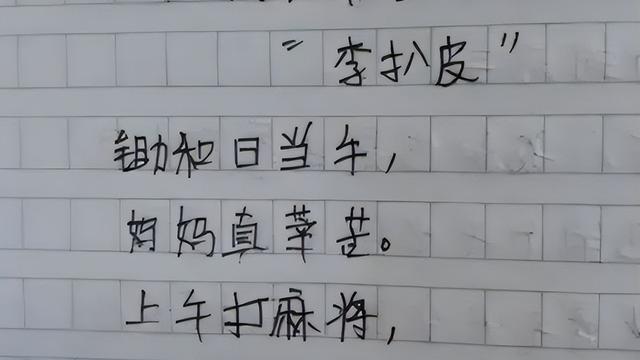 “李扒皮”
锄和日当午,
妈妈真莘苦。
上午打麻将,